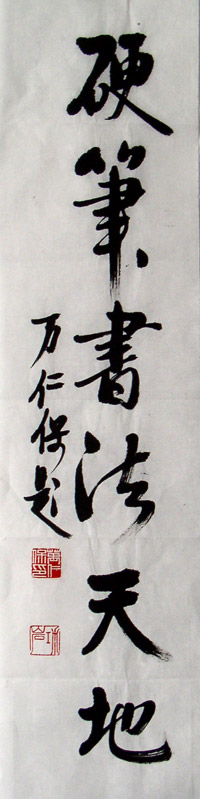 硬筆書法天地
万仁保题